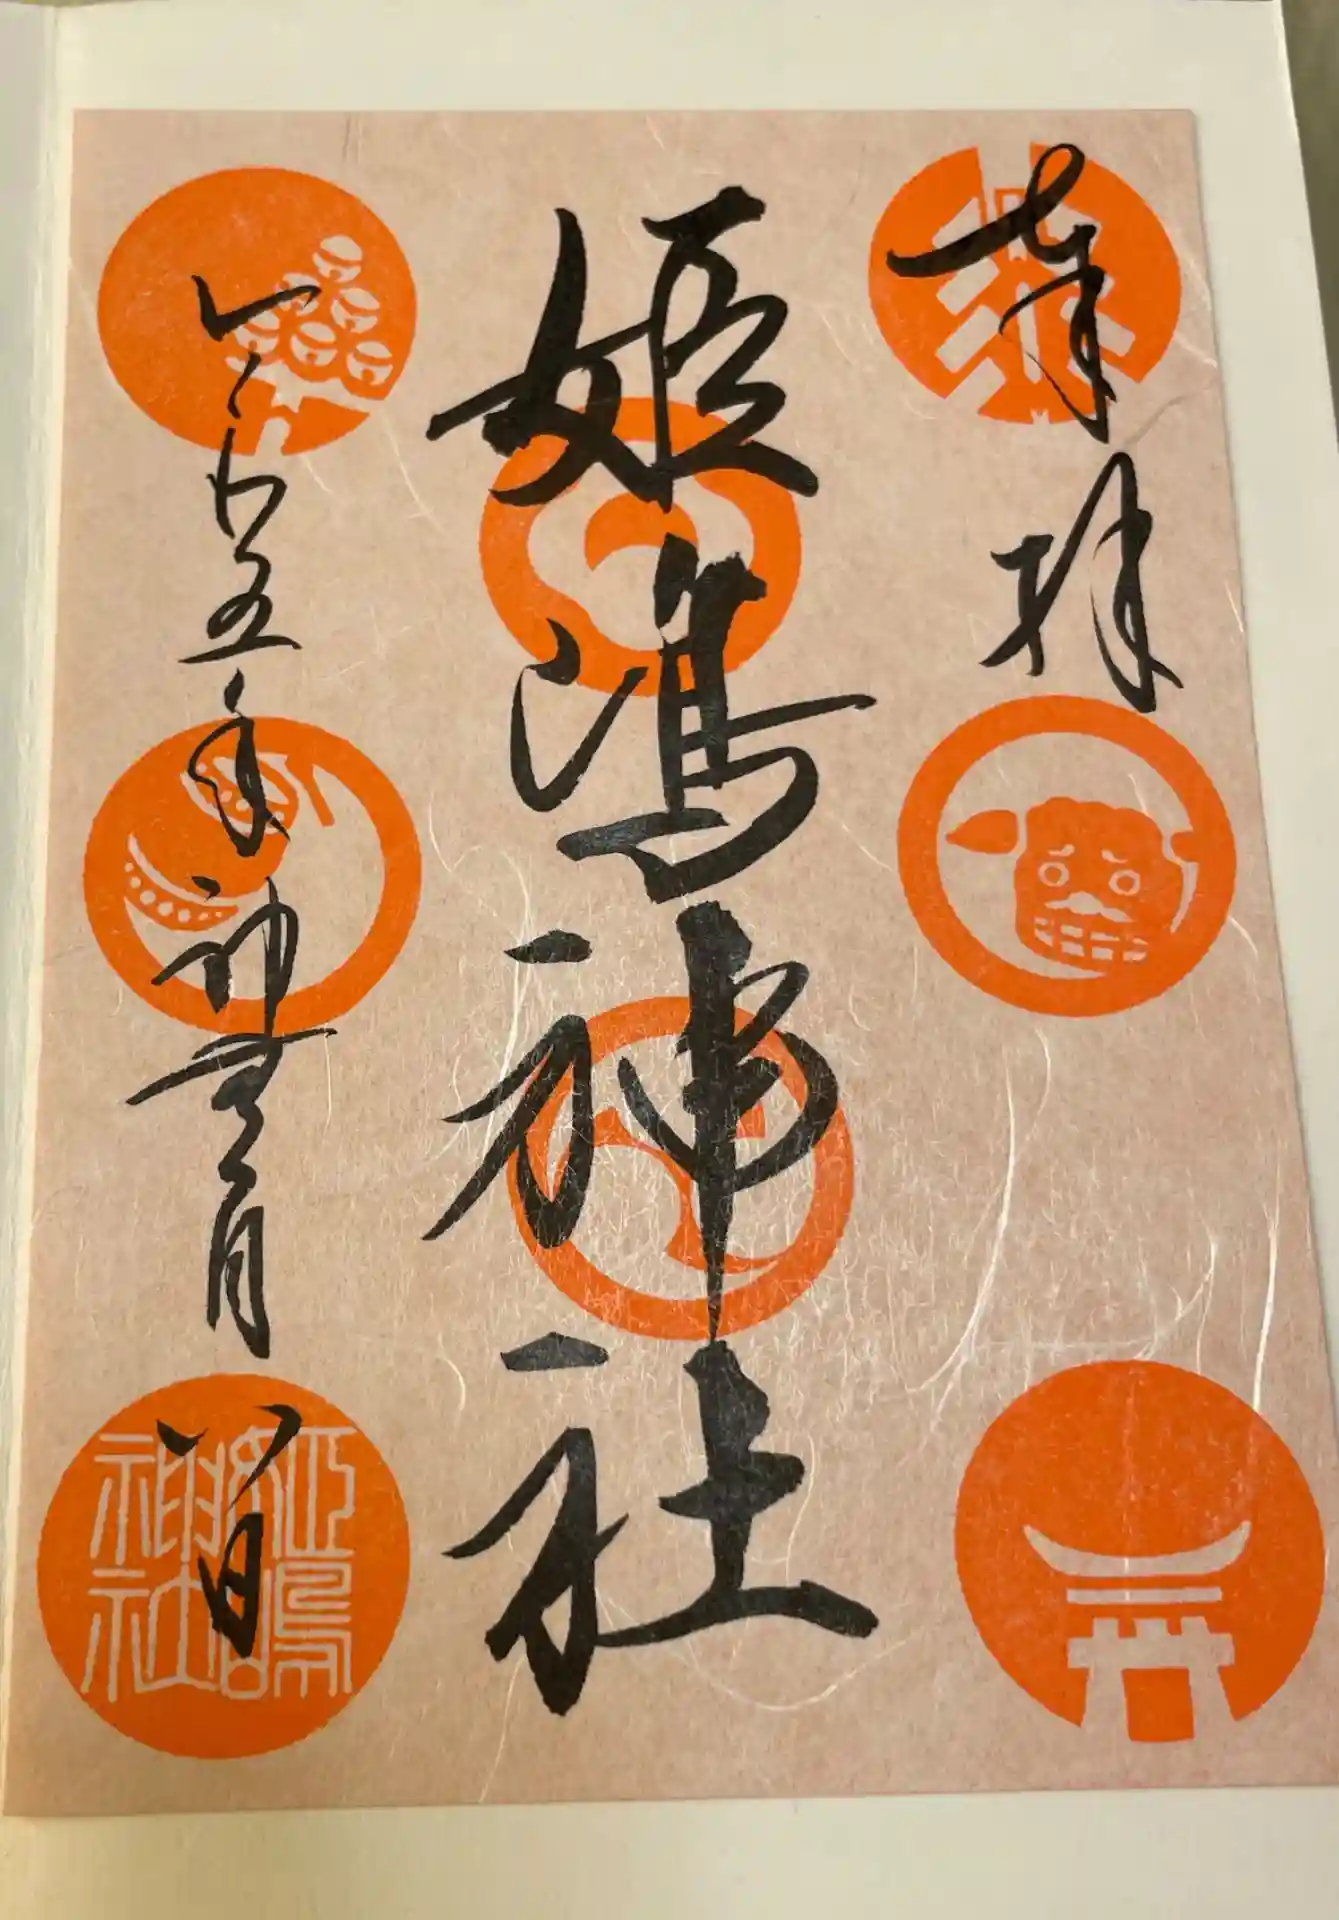 奉拝
姫嶋神社
令和五年神無月 八日
姫嶋
神社